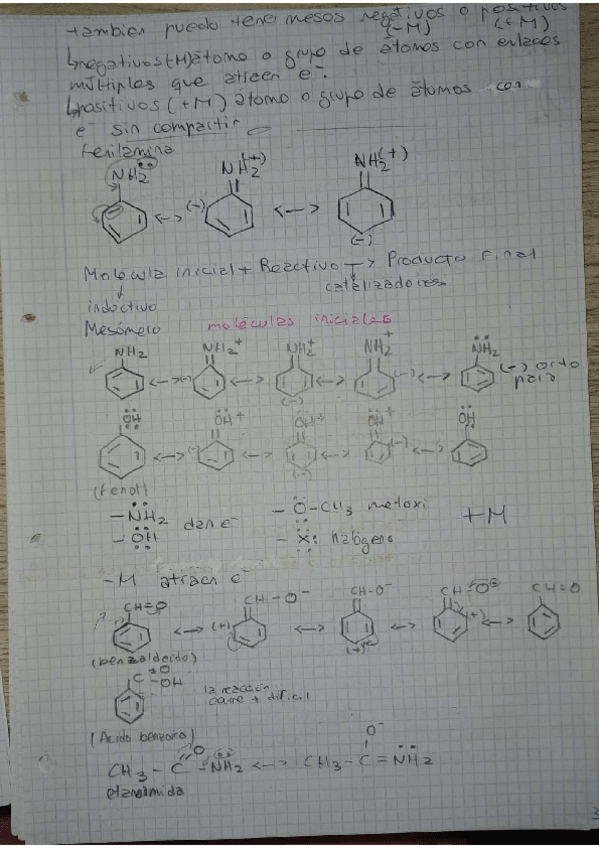 tambien puedo tener mesos negativos o positivos
(-M) (+M)
↳negativos(-M)átomo o grupo de átomos con enlaces
múltiples que atraen e⁻.
↳positivos (+M) átomo o grupo de átomos con
e⁻ sin compartir
Fenilamina
NH2 NH2(+) NH2(+)
(-) (-)
Molécula inicial + Reactivo → Producto Final
catalizadores
inductivo
Mesómero moléculas iniciales
NH2 NH2+ NH2+ NH2+ NH2
(-) (-) (-) (-) orto
para
OH OH+ OH+ OH+ OH
(-) (-) (-)
(fenol)
-NH2 dan e⁻ -O-CH3 metoxi +M
-OH -X: halógeno
-M atraen e⁻
CH=O CH-O⁻ CH-O⁻ CH-O⊖ CH=O
(+) (+) (+)
(benzaldeido)
C=O
-OH la reacción
ocurre + dificil
(Acido benzoico)
O O⁻
CH3-C-NH2 <-> CH3-C=NH2
etanamida
3